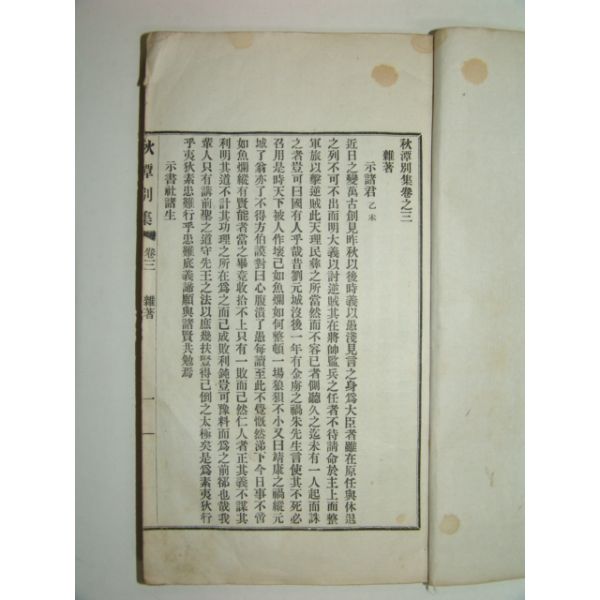 秋潭別集卷之三
雜著
示諸君 乙未
近日之變萬古創見昨秋以後時義以愚淺見言之身爲大臣者雖在原任與休退
之列不可不出而明大義以討逆賊其在將帥監兵之任者不待請命於主上而整
軍旅以擊逆賊此天理民彝之所當然而不容已者側聽久之迄未有一人起而誅
之者豈可曰國有人乎哉昔劉元城沒後一年有金虜之禍朱先生言使其不死必
召用是時天下被人作壞已如魚爛如何整頓一場狼狽不小又曰靖康之禍縱元
城了翁亦了不得方伯謨對曰心腹潰了愚每讀至此不覺慨然涕下今日事不啻
如魚爛縱有賢能者當之畢竟收拾不上只有一敗而已然仁人者正其義不謀其
利明其道不計其功理之所在爲之而已成敗利鈍豈可豫料而爲之前郤也哉我
輩人只有講前聖之道守先王之法以庶幾扶豎得已倒之太極矣是爲素夷狄行
乎夷狄素患難行乎患難底義諦願與諸賢共勉焉
示書社諸生
秋潭別集
卷三
雜著
一